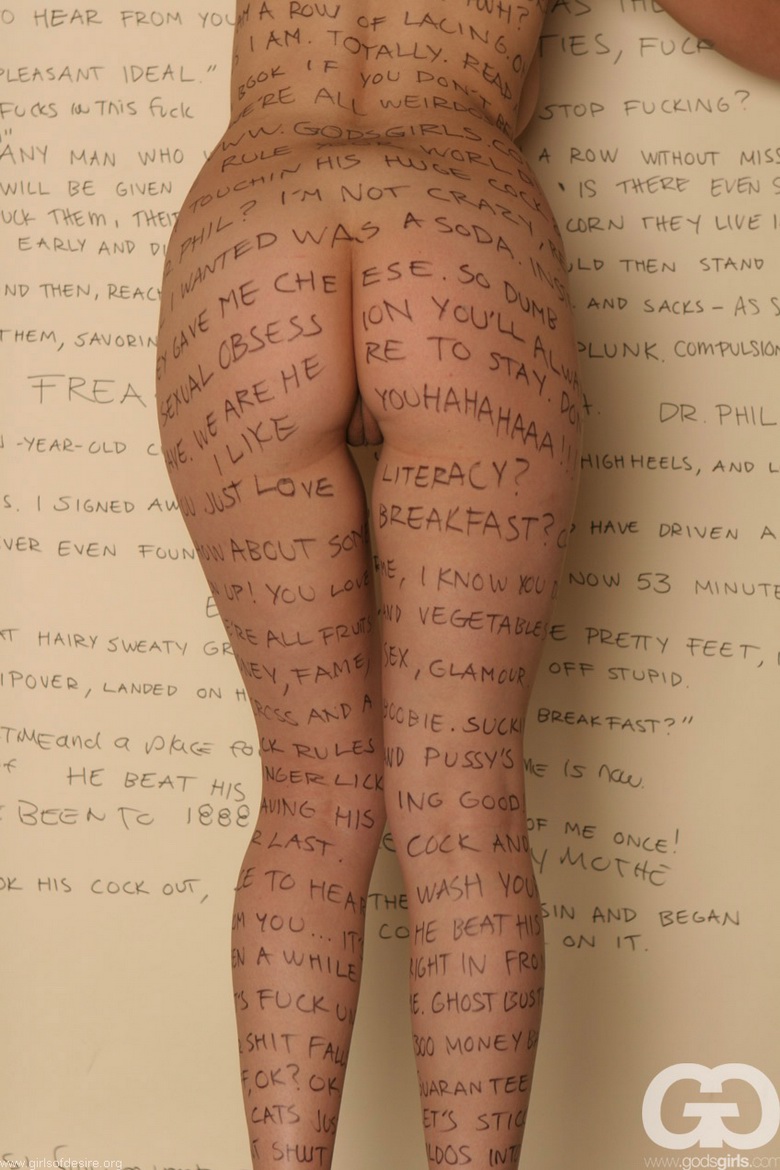 O HEAR FROM YOU
A ROW OF LACING.
AS THE
I AM. TOTALLY. READ,
TIES, FUCK
PLEASANT IDEAL."
BOOK IF YOU DON'T
FUCKS IN THIS FUCK
WE'RE ALL WEIRDO
STOP FUCKING?
WWW.GODSGIRLS.CO
ANY MAN WHO
RULE YOUR WORLD
A ROW WITHOUT MISS
WILL BE GIVEN
TOUCHIN HIS HUGE COCK
IS THERE EVEN S
UCK THEM, THEIR
PHIL? I'M NOT CRAZY,
CORN THEY LIVE I
EARLY AND DI
I WANTED WAS A SODA. INS
LD THEN STAND
ND THEN, REACH
EY GAVE ME CHE ESE. SO DUMB
AND SACKS - AS S
THEM, SAVORIN
SEXUAL OBSESS ION YOU'LL ALWA
PLUNK. COMPULSION
FREA
AVE. WE ARE HE RE TO STAY. DO
DR. PHIL
I LIKE YOUHAHAHAAA!!!
-YEAR-OLD C
HIGH HEELS, AND L
U JUST LOVE LITERACY?
S. I SIGNED AW
BREAKFAST?
HAVE DRIVEN A
VER EVEN FOUN
OW ABOUT SOM
E, I KNOW YOU
NOW 53 MINUTE
UP! YOU LOVE
AND VEGETABLES
E PRETTY FEET,
AT HAIRY SWEATY GR
E'RE ALL FRUITS
SEX, GLAMOUR,
OFF STUPID.
IPOVER, LANDED ON H
NEY, FAME,
BOOBIE. SUCKI
BREAKFAST?"
ROSS AND A
TIME and a place fo
CK RULES
ND PUSSY'S
ME IS NOW.
HE BEAT HIS
NGER LICK ING GOOD
BEEN TO 1888
AVING HIS COCK AND
OF ME ONCE!
R LAST.
Y MOTHE
OK HIS COCK OUT,
CE TO HEAR
THE
WASH YOU
SIN AND BEGAN
OM YOU... IT
CO
HE BEAT HIS
ON IT.
EN A WHILE
RIGHT IN FRO
'S FUCK U
E. GHOST BUST
SHIT FALL
300 MONEY B
F, OK? OK
UARANTEE
CATS JUS
ET'S STIC
T SHUT
LDOS INT
GG
www.girlsofdesire.org
www.godsgirls.com